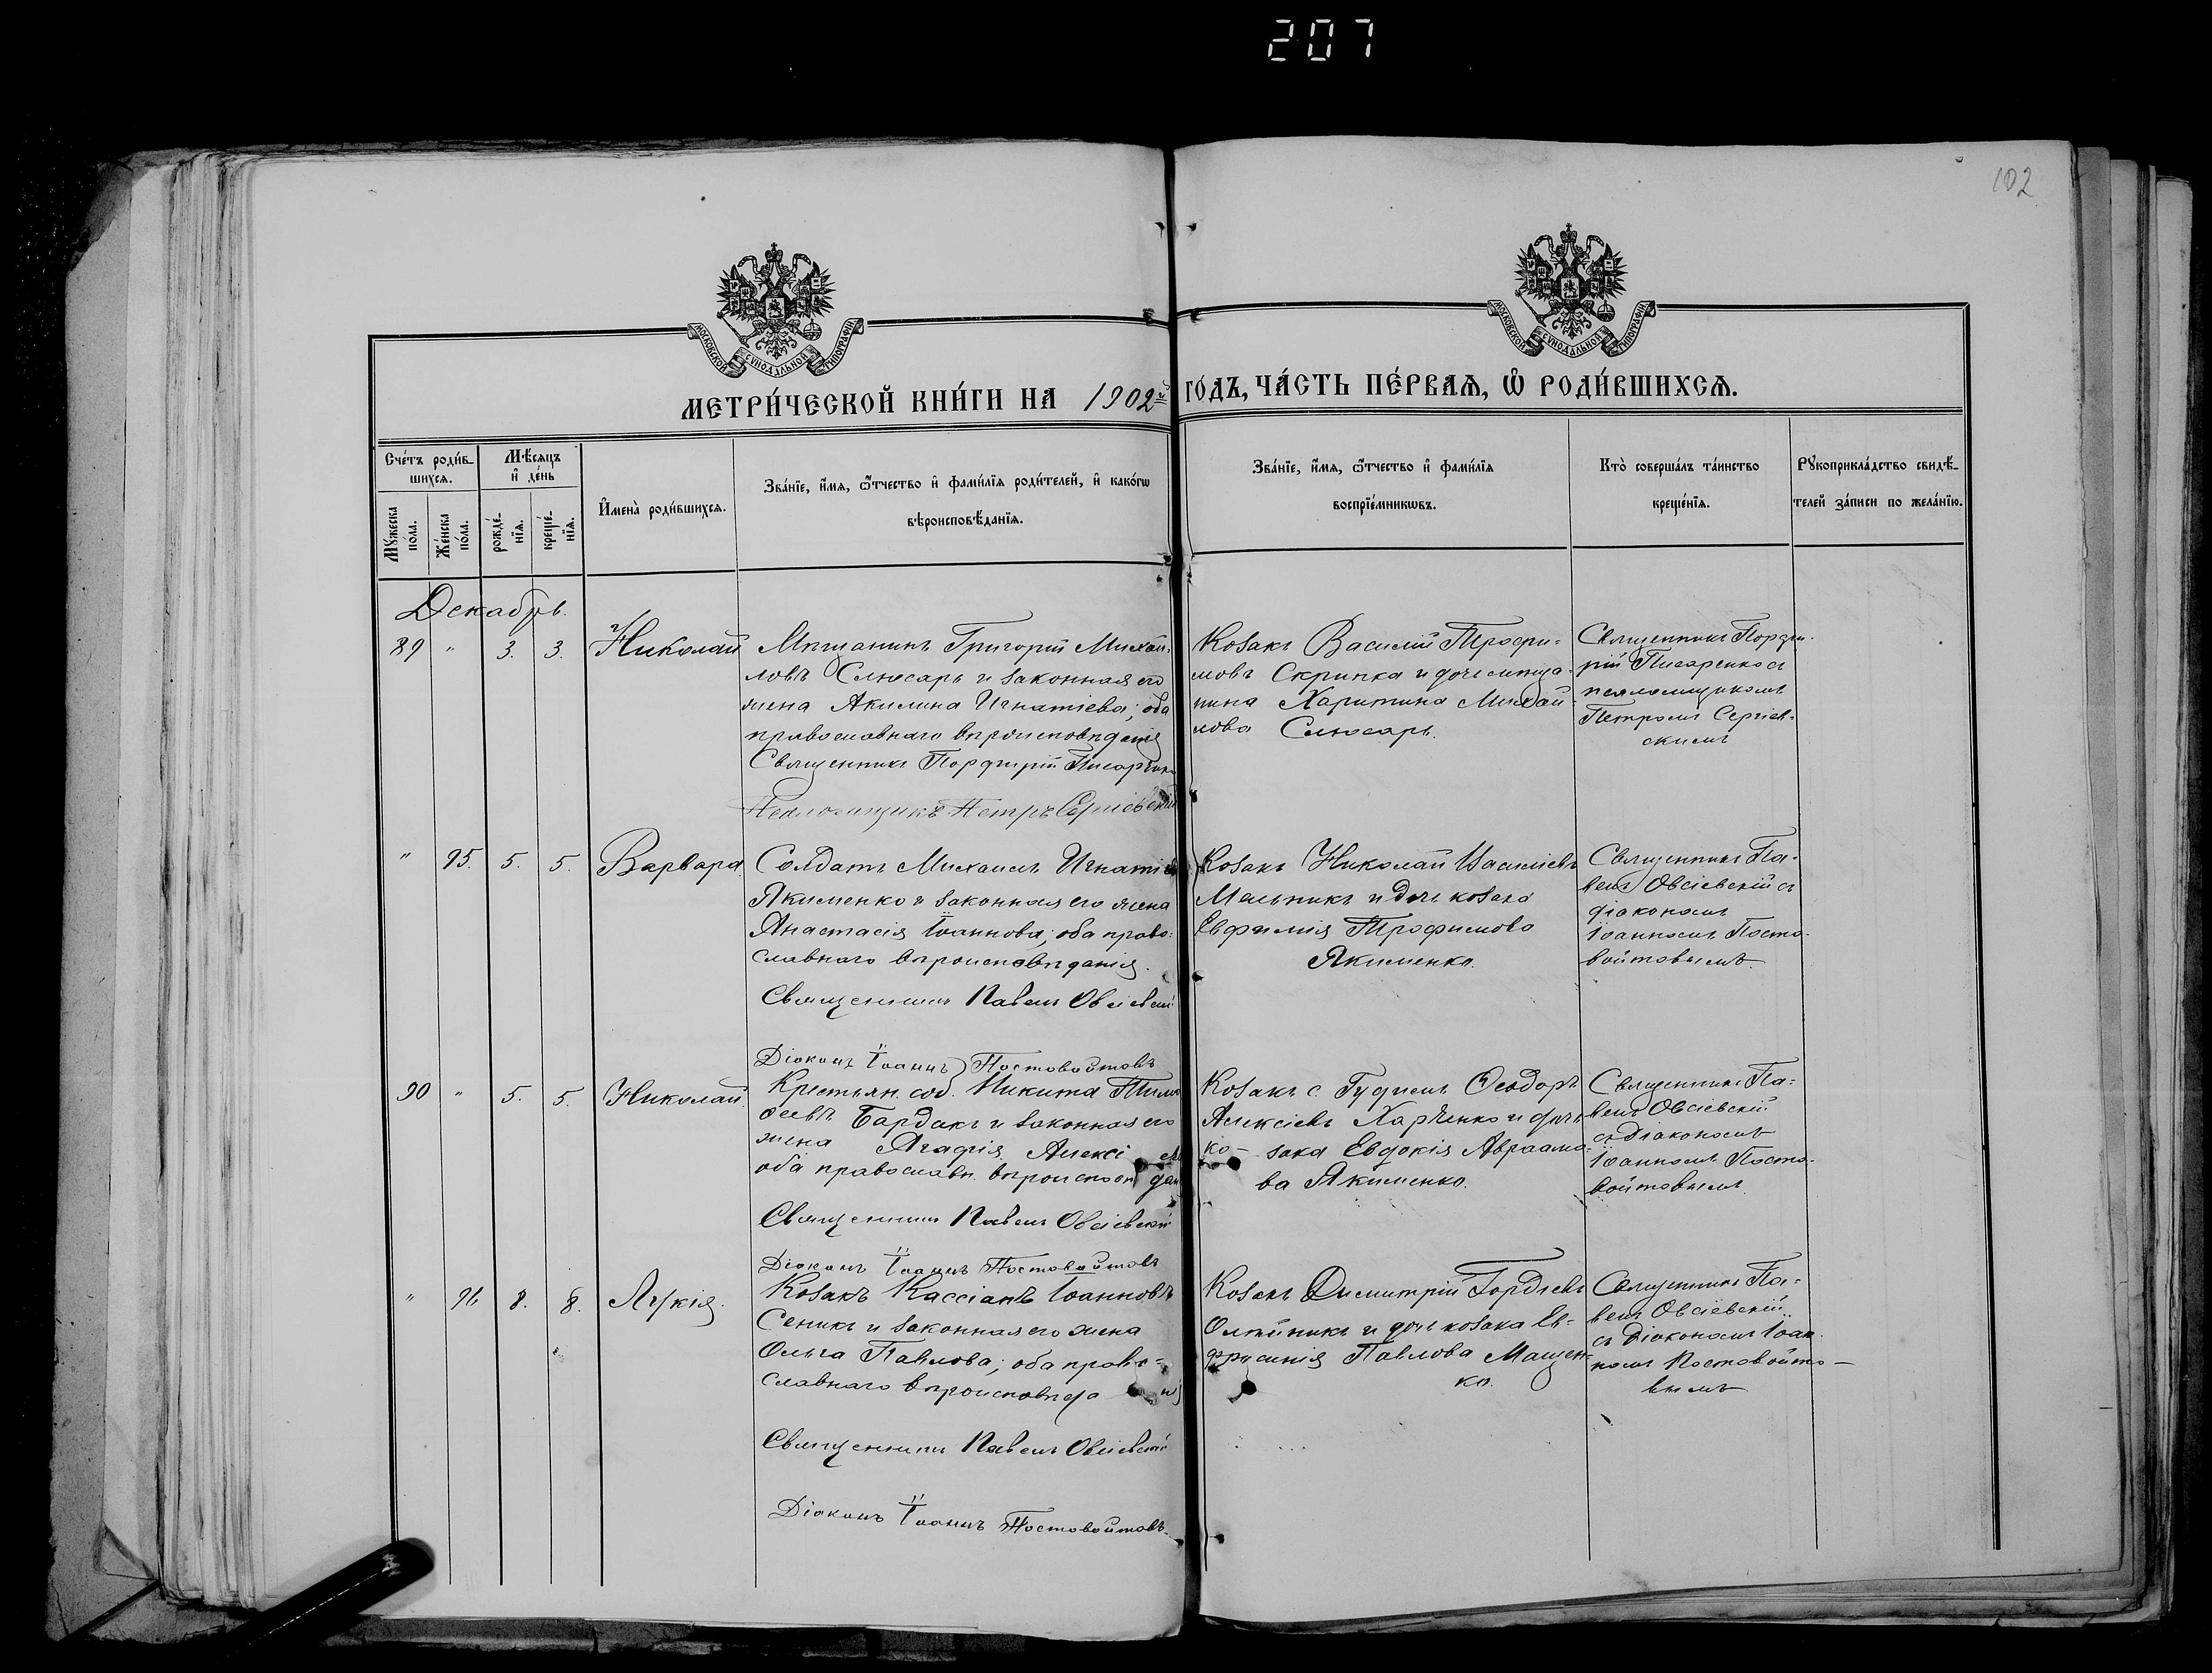 207
102
МОСКОВСКОЙ СѴНОДАЛЬНОЙ ТИПОГРАФІИ
МОСКОВСКОЙ СѴНОДАЛЬНОЙ ТИПОГРАФІИ
МЕТРИ́ЧЕСКОЙ КНИ́ГИ НА 1902й ГО́ДЪ, ЧА́СТЬ ПЕ́РВАѦ, Ѽ РОДИ́ВШИХСѦ.
Сче́тъ роди́в-
шихсѧ.
Мꙋжеска по́ла.
Же́нска по́ла.
Мѣ́сѧцъ и҆ де́нь
рожде́-
нїѧ.
креще́-
нїѧ.
И҆мена̀ роди́вшихсѧ.
Зва́нїе, и҆́мѧ, ѻ҆́тчество и҆ фами́лїѧ роди́телей, и҆ како́гѡ
вѣроисповѣ́данїѧ.
Зва́нїе, и҆́мѧ, ѻ҆́тчество и҆ фами́лїѧ
воспрїе́мникѡвъ.
Кто̀ соверша́лъ та́инство
креще́нїѧ.
Рꙋкоприкла́дство свидѣ́-
телей за́писи по жела́нїю.
Декабрь.
89 " 3. 3. Николай
Мѣщанинъ Григорій Михай-
ловъ Слюсарь и законная его
жена Акилина Игнатіева; оба
православнаго вѣроисповѣданія
Священникъ Порфирій Писаренко
Псаломщикъ Петръ Сергіевскій
Козакъ Василій Трофи-
мовъ Скрипка и дочь мѣща-
нина Харитина Михай-
лова Слюсарь.
Священникъ Порфи-
рій Писаренко съ
псаломщикомъ
Петромъ Сергіев-
скимъ
" 95. 5. 5. Варвара
Солдатъ Михаилъ Игнатіев
Якименко и законная его жена
Анастасія Іоаннова; оба право-
славнаго вѣроисповѣданія.
Священникъ Павелъ Овсіевскій
Діаконъ Іоаннъ Постовойтовъ
Козакъ Николай
Мельникъ и дочь козака
Евфимія Трофимова
Якименко.
Священникъ Па-
велъ Овсіевскій съ
діакономъ
Іоанномъ Посто-
войтовымъ
90 " 5. 5. Николай.
Крестьян. соб. Никита Тимо
ѳеевъ Бардакъ и законная его
жена Агафія Алексі
оба православн. вѣроиспов дан
Священникъ Павелъ Овсіевскій
Діаконъ Іоаннъ Постовойтовъ
Козакъ с. Ѳеодоръ
Алексіевъ Харченко и дочь
ко- зака Евдокія Авраамо-
ва Якименко.
Священникъ Па-
велъ Овсіевскій
съ Діакономъ
Іоанномъ Посто-
войтовымъ.
" 96 8. 8. Лукія.
Козакъ Кассіанъ Іоанновъ
Сеникъ и законная его жена
Ольга Павлова; оба право-
славнаго вѣроисповѣда нія
Священникъ Павелъ Овсіевскій
Діаконъ Іоаннъ Постовойтовъ
Козакъ Димитрій Гордіевъ
Олійникъ и дочь козака Ев-
фросинія Павлова Мащен-
ко.
Священникъ Па-
велъ Овсіевскій
съ Діакономъ Іоан-
номъ Постовойто-
вымъ